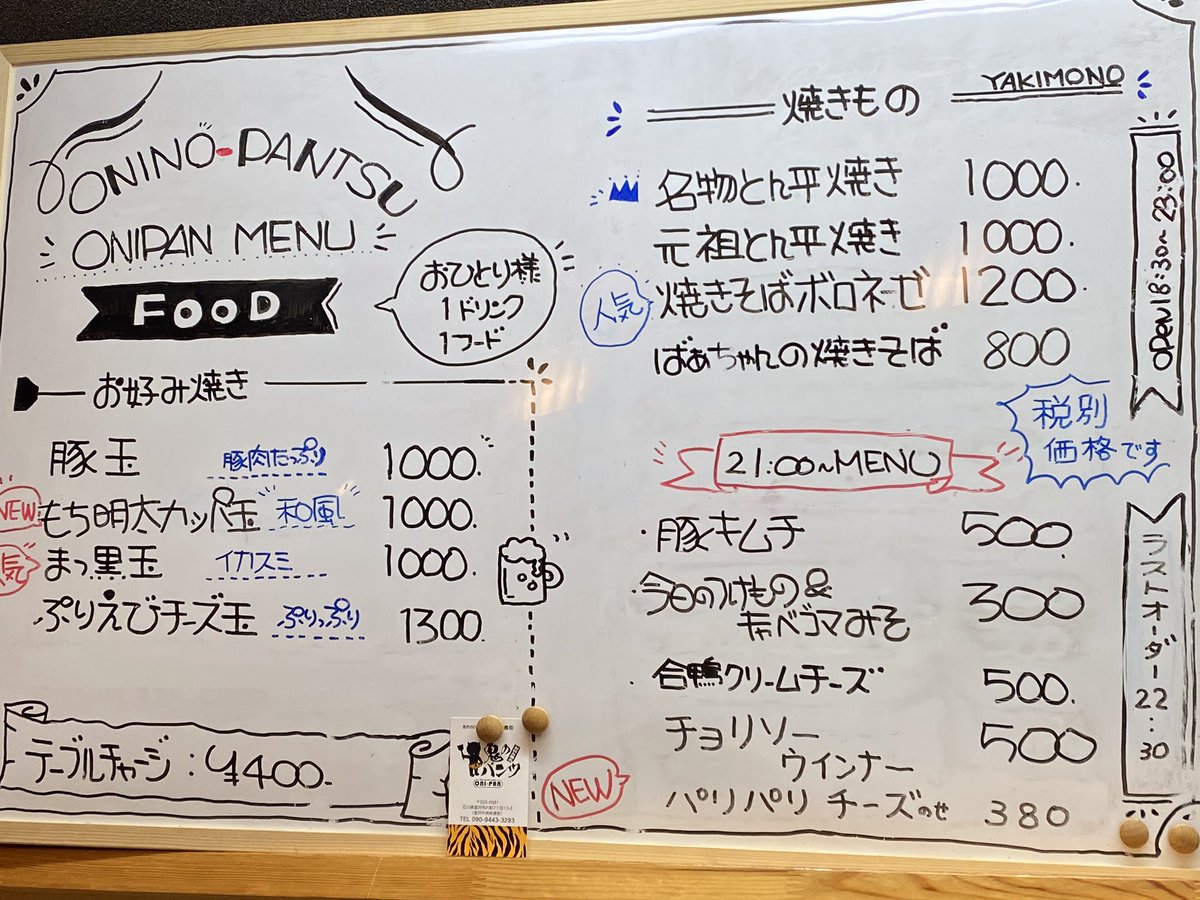 ONINO-PANTSU
ONIPAN MENU
FOOD
おひとり様
1ドリンク
1フード
お好み焼き
豚玉 豚肉たっぷり 1000.
NEW もち明太カッパ玉 和風 1000.
気 まっ黒玉 イカスミ 1000.
ぷりえびチーズ玉 ぷりっぷり 1300.
テーブルチャージ:¥400.
鬼の
パンツ
ONI-PAN
TEL 090-9443-3293
焼きもの YAKIMONO
名物とん平焼き 1000.
元祖とん平焼き 1000.
人気 焼きそばボロネーゼ 1200
ばあちゃんの焼きそば 800
税別
価格です
21:00~MENU
・豚キムチ 500.
・今日のつけもの&
キャベゴマみそ 300
・合鴨クリームチーズ 500.
チョリソー
ウインナー 500
NEW パリパリチーズのせ 380
OPEN 18:30~23:00
ラストオーダー22:30